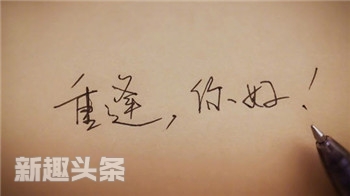 重逢，你好！
新趣头条